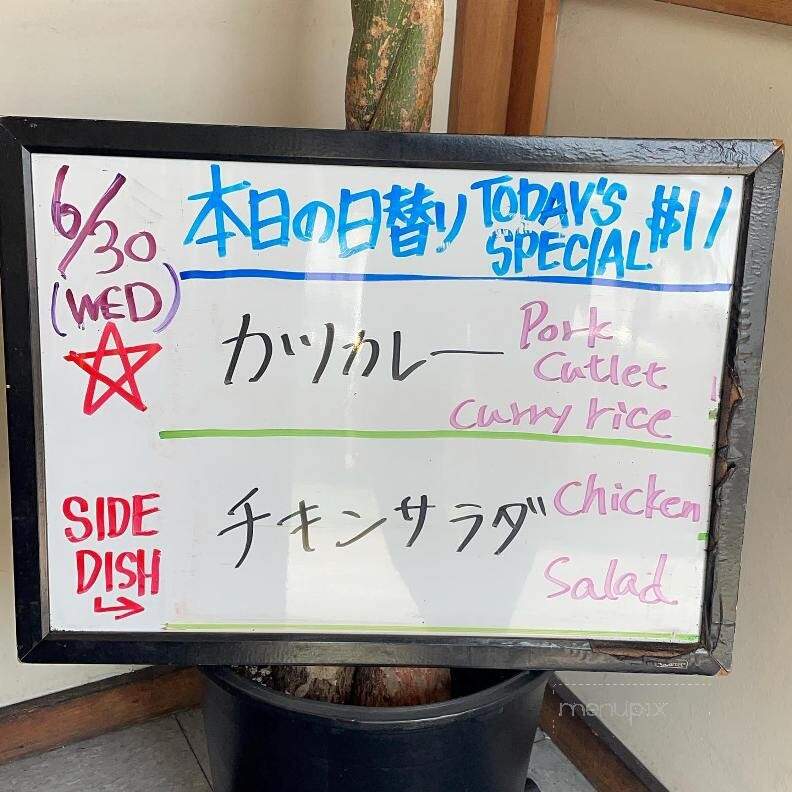 6/30
(WED)
本日の日替り TODAY'S SPECIAL $11
カツカレー Pork
Cutlet
Curry rice
SIDE
DISH
チキンサラダ Chicken
Salad
menupix